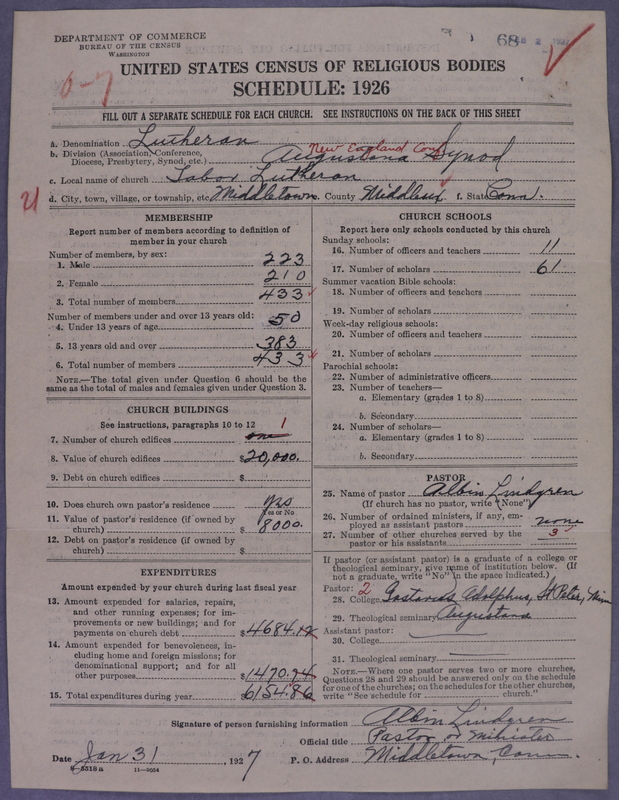 DEPARTMENT OF COMMERCE
BUREAU OF THE CENSUS
WASHINGTON
68
UNITED STATES CENSUS OF RELIGIOUS BODIES
SCHEDULE: 1926
FILL OUT A SEPARATE SCHEDULE FOR EACH CHURCH. SEE INSTRUCTIONS ON THE BACK OF THIS SHEET
a. Denomination Lutheran
New England Conf
b. Division (Association, Conference, Diocese, Presbytery, Synod, etc.) Augustana Synod
c. Local name of church Tabor Lutheran
d. City, town, village, or township, etc. Middletown County Middlesex f. State Conn.
MEMBERSHIP
Report number of members according to definition of member in your church
Number of members, by sex:
1. Male 223
2. Female 210
3. Total number of members 433
Number of members under and over 13 years old:
4. Under 13 years of age 50
5. 13 years old and over 383
6. Total number of members 433
NOTE.—The total given under Question 6 should be the same as the total of males and females given under Question 3.
CHURCH BUILDINGS
See instructions, paragraphs 10 to 12
7. Number of church edifices one 1
8. Value of church edifices $20,000.
9. Debt on church edifices $
10. Does church own pastor's residence yes
Yes or No
11. Value of pastor's residence (if owned by church) $8000.
12. Debt on pastor's residence (if owned by church) $
EXPENDITURES
Amount expended by your church during last fiscal year
13. Amount expended for salaries, repairs, and other running expenses; for improvements or new buildings; and for payments on church debt $4684.12
14. Amount expended for benevolences, including home and foreign missions; for denominational support; and for all other purposes $1470.74
15. Total expenditures during year $6154.86
CHURCH SCHOOLS
Report here only schools conducted by this church
Sunday schools:
16. Number of officers and teachers 11
17. Number of scholars 61
Summer vacation Bible schools:
18. Number of officers and teachers
19. Number of scholars
Week-day religious schools:
20. Number of officers and teachers
21. Number of scholars
Parochial schools:
22. Number of administrative officers
23. Number of teachers—
a. Elementary (grades 1 to 8)
b. Secondary
24. Number of scholars—
a. Elementary (grades 1 to 8)
b. Secondary
PASTOR
25. Name of pastor Albin Lindgren
(If church has no pastor, write "None")
26. Number of ordained ministers, if any, employed as assistant pastors none
27. Number of other churches served by the pastor or his assistants 3
If pastor (or assistant pastor) is a graduate of a college or theological seminary, give name of institution below. (If not a graduate, write "No" in the space indicated.)
Pastor: 2
28. College Gustavus Adolphus, St Peter, Minn
29. Theological seminary Augustana
Assistant pastor:
30. College
31. Theological seminary
NOTE.—Where one pastor serves two or more churches, Questions 28 and 29 should be answered only on the schedule for one of the churches; on the schedules for the other churches, write "See schedule for church."
Signature of person furnishing information Albin Lindgren
Official title Pastor or Minister
Date Jan 31, 1927 P. O. Address Middletown, Conn.
8-5318a 11-9054